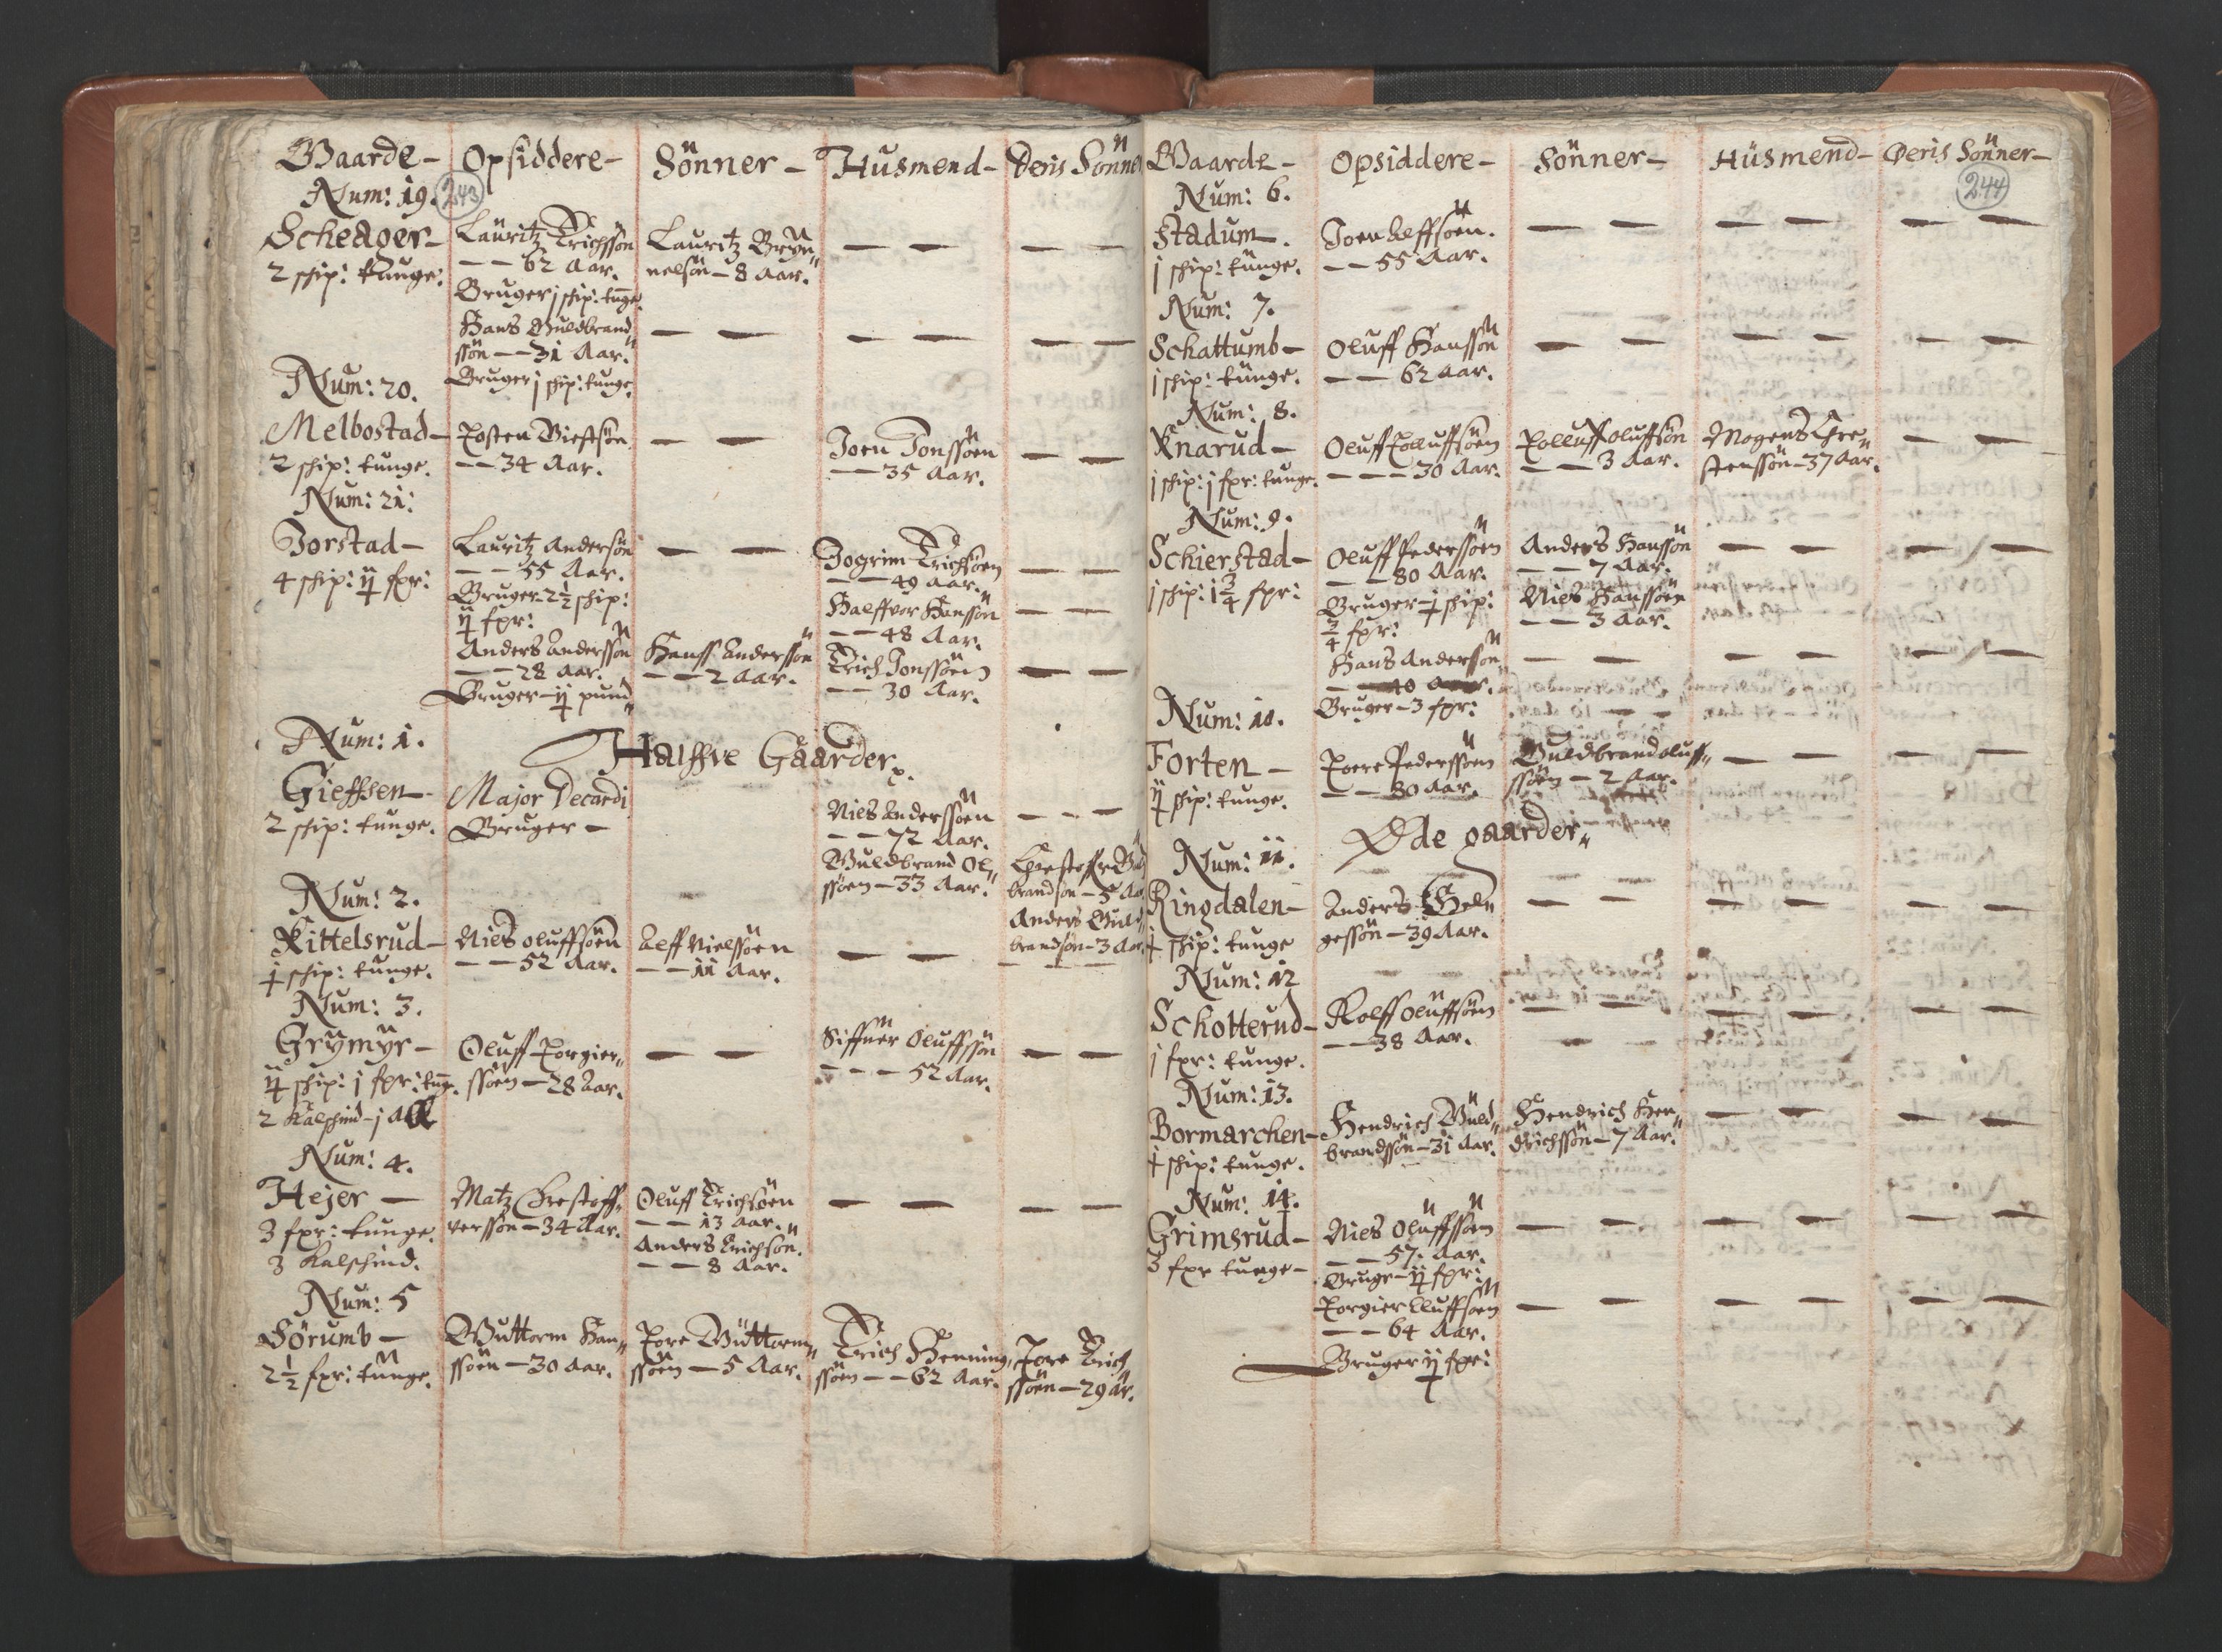 Gaarde – Opsiddere – Sönner – Husmend – Deris Sönner
243
Num: 19.
Scheager –
2 ship: tunge:
Lauritz Erichssön
— — 62 Aar.
Bruger j ship: tunge
Lauritz Bryn„
nelsön – 8 Aar.
— —
— —
Hans Guldbrand„
ssön — 31 Aar.
Bruger j ship: tunge.
— —
— —
— —
Num: 20.
Melbostad –
2 ship: tunge.
— — 34 Aar.
— —
Joen Jonssöen
— — 35 Aar.
— —
Num: 21:
Jorstad –
4 ship: ij fpr:
Lauritz Andersön
— — 55 Aar.
Bruger 2½ ship:
ij fpr:
— —
Jogrim Erichsöen
— — 49 Aar.
— —
Halffvor Hanssön
— — 48 Aar.
— —
Anders Anderssön
— — 28 Aar.
Bruger – ij pund„
Hanss Anderssön
— — 2 Aar.
Erich Jonssöen
— — 30 Aar.
— —
Halffve Gaarder
Num: 1.
Gieffsen –
2 ship: tunge.
Major Decardi
Bruger –
Niels Anderssöen
— — 72 Aar.
— —
Guldbrand Ol„
ssöen – 33 Aar.
Chrestoffer Guld
brandsön – 5 Aar
Anders Guld„
brandsön – 3 Aar
Num: 2.
Kittelsrud –
j ship: tunge.
Niels Oluffsöen
— — 52 Aar.
Alff Nielssöen
— — 11 Aar.
— —
— —
Num: 3.
Grymyr –
ij ship: j fpr: tung.
2 Kalshind – j all
Oluff Torgier„
ssöen — 28 Aar.
— —
Siffuer Oluffssön
— — — 52 Aar.
— —
Num: 4.
Hejer –
3 fpr: tunge.
3 Kalshind.
Matz Chrestoff„
verssön – 34 Aar.
Oluff Erichsöen
— — 13 Aar.
Anders Erichsön.
— — 8 Aar.
— —
— —
Num: 5
Sörumb –
2½ fpr: tunge.
Guttorm Han„
ssöen – 30 Aar.
Tore Guttorm„
ssöen — 5 Aar.
Erich Henning„
ssöen — — 62 Aar.
Tore Erich
ssöen – 29 Ar.
Gaarde – Opsiddere – Sönner – Husmend – Deris Sönner –
244
Num: 6.
Stadum –.
j ship: tunge.
Joen Alffsöen.
— — 55 Aar.
— —
— —
— —
Num: 7.
Schattumb –
j ship: tunge.
Oluff Hanssön
— — 62 Aar.
— —
— —
— —
Num: 8.
Knarud –
j ship: j fpr: tunge.
Oluff Tolluffsöen
— — — 30 Aar.
Tolluff Oluffsön
— — 3 Aar.
Mogens Chre„
stenssön – 37 Aar.
— —
Num: 9.
Schierstad –
j ship: 1¾ fpr:
Oluff Pederssöen
— — 80 Aar.
Bruger – j ship:
¾ fpr:
Anders Hanssön
— — 7 Aar.
Niels Hanssöen
— — 3 Aar.
— —
— —
Hans Anderssön
— — 40 Aar.
Bruger – 3 fpr:
— —
— —
— —
Num: 10.
Forten –
ij ship: tunge.
Poere Pederssöen
— — 30 Aar.
Guldbrand Oluff„
ssöen – 2 Aar.
— —
— —
Øde gaarder„
Num: 11.
Ringdalen –
j ship: tunge
Anders Hel„
gessön – 39 Aar.
— —
— —
— —
Num: 12
Schotterud –
j fpr: tunge.
Rolff Oluffsöen
— — 38 Aar.
— —
— —
— —
Num: 13.
Bormarchen –
j ship: tunge.
Hendrich Guld„
brandssön – 31 Aar.
Hendrich Hen„
drichssön – 7 Aar.
— —
— —
Num: 14.
Grimsrud –
3 fpr tunge –
Niels Oluffssöen
— — 57. Aar.
Bruger – ij fpr:
— —
— —
— —
Torgier Oluffsöen
— — 64 Aar.
Bruger ij fpr:
— —
— —
— —